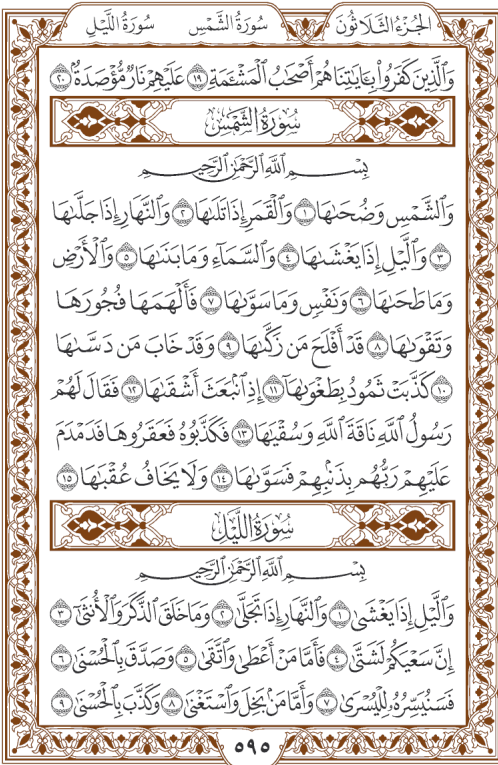 الجزء الثلاثون سورة الشمس سورة الليل
وَالَّذِينَ كَفَرُوا۟ بِـَٔايَٰتِنَا هُمْ أَصْحَٰبُ الْمَشْـَٔمَةِ ١٩ عَلَيْهِمْ نَارٌ مُّؤْصَدَةٌۢ ٢٠
سُورَةُ الشَّمْسِ
بِسْمِ اللَّهِ الرَّحْمَٰنِ الرَّحِيمِ
وَالشَّمْسِ وَضُحَىٰهَا ١ وَالْقَمَرِ إِذَا تَلَىٰهَا ٢ وَالنَّهَارِ إِذَا جَلَّىٰهَا
٣ وَالَّيْلِ إِذَا يَغْشَىٰهَا ٤ وَالسَّمَآءِ وَمَا بَنَىٰهَا ٥ وَالْأَرْضِ
وَمَا طَحَىٰهَا ٦ وَنَفْسٍ وَمَا سَوَّىٰهَا ٧ فَأَلْهَمَهَا فُجُورَهَا
وَتَقْوَىٰهَا ٨ قَدْ أَفْلَحَ مَن زَكَّىٰهَا ٩ وَقَدْ خَابَ مَن دَسَّىٰهَا
١٠ كَذَّبَتْ ثَمُودُ بِطَغْوَىٰهَآ ١١ إِذِ انۢبَعَثَ أَشْقَىٰهَا ١٢ فَقَالَ لَهُمْ
رَسُولُ اللَّهِ نَاقَةَ اللَّهِ وَسُقْيَٰهَا ١٣ فَكَذَّبُوهُ فَعَقَرُوهَا فَدَمْدَمَ
عَلَيْهِمْ رَبُّهُم بِذَنۢبِهِمْ فَسَوَّىٰهَا ١٤ وَلَا يَخَافُ عُقْبَٰهَا ١٥
سُورَةُ اللَّيْلِ
بِسْمِ اللَّهِ الرَّحْمَٰنِ الرَّحِيمِ
وَالَّيْلِ إِذَا يَغْشَىٰ ١ وَالنَّهَارِ إِذَا تَجَلَّىٰ ٢ وَمَا خَلَقَ الذَّكَرَ وَالْأُنثَىٰٓ ٣
إِنَّ سَعْيَكُمْ لَشَتَّىٰ ٤ فَأَمَّا مَنْ أَعْطَىٰ وَاتَّقَىٰ ٥ وَصَدَّقَ بِالْحُسْنَىٰ ٦
فَسَنُيَسِّرُهُۥ لِلْيُسْرَىٰ ٧ وَأَمَّا مَنۢ بَخِلَ وَاسْتَغْنَىٰ ٨ وَكَذَّبَ بِالْحُسْنَىٰ ٩
٥٩٥